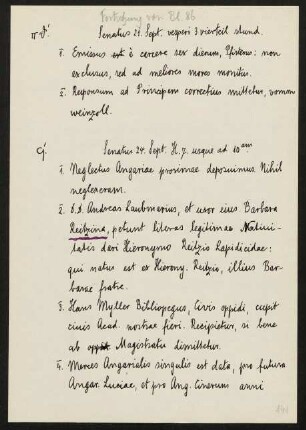 Fortsetzung von Bl. 86
Senatus 21. Sept. vesperi 3 viertheil stund.
1. Emissus est è carcere sex dierum, Pfisterus: non
exclusus, sed ad meliores mores monitus.
2. Responsum ad Principem correctius mittetur, vonwen
weinzoll.
Senatus 24. Sept. H. 7. usque ad 10am
1. Neglectus Angariae proximae deposuimus. Nihil
neglexeram.
2. D.D. Andreas Laubmarius, et uxor eius Barbara
Reitzina, petunt literas legitimae Nativi-
tatis dari Hieronymo Reitzio Lapidicidae:
qui natus est ex Hieron. Reitzio, illius Bar-
barae fratre.
3. Hans Myller Bibliopegus, Civis oppidi, cupit
civis Acad. nostrae fieri. Recipietur, si bene
ab Magistratu dimittetur.
4. Merces Angarialis singulis est data, pro futura
Angar. Luciae, et pro Ang. Cinerum anni